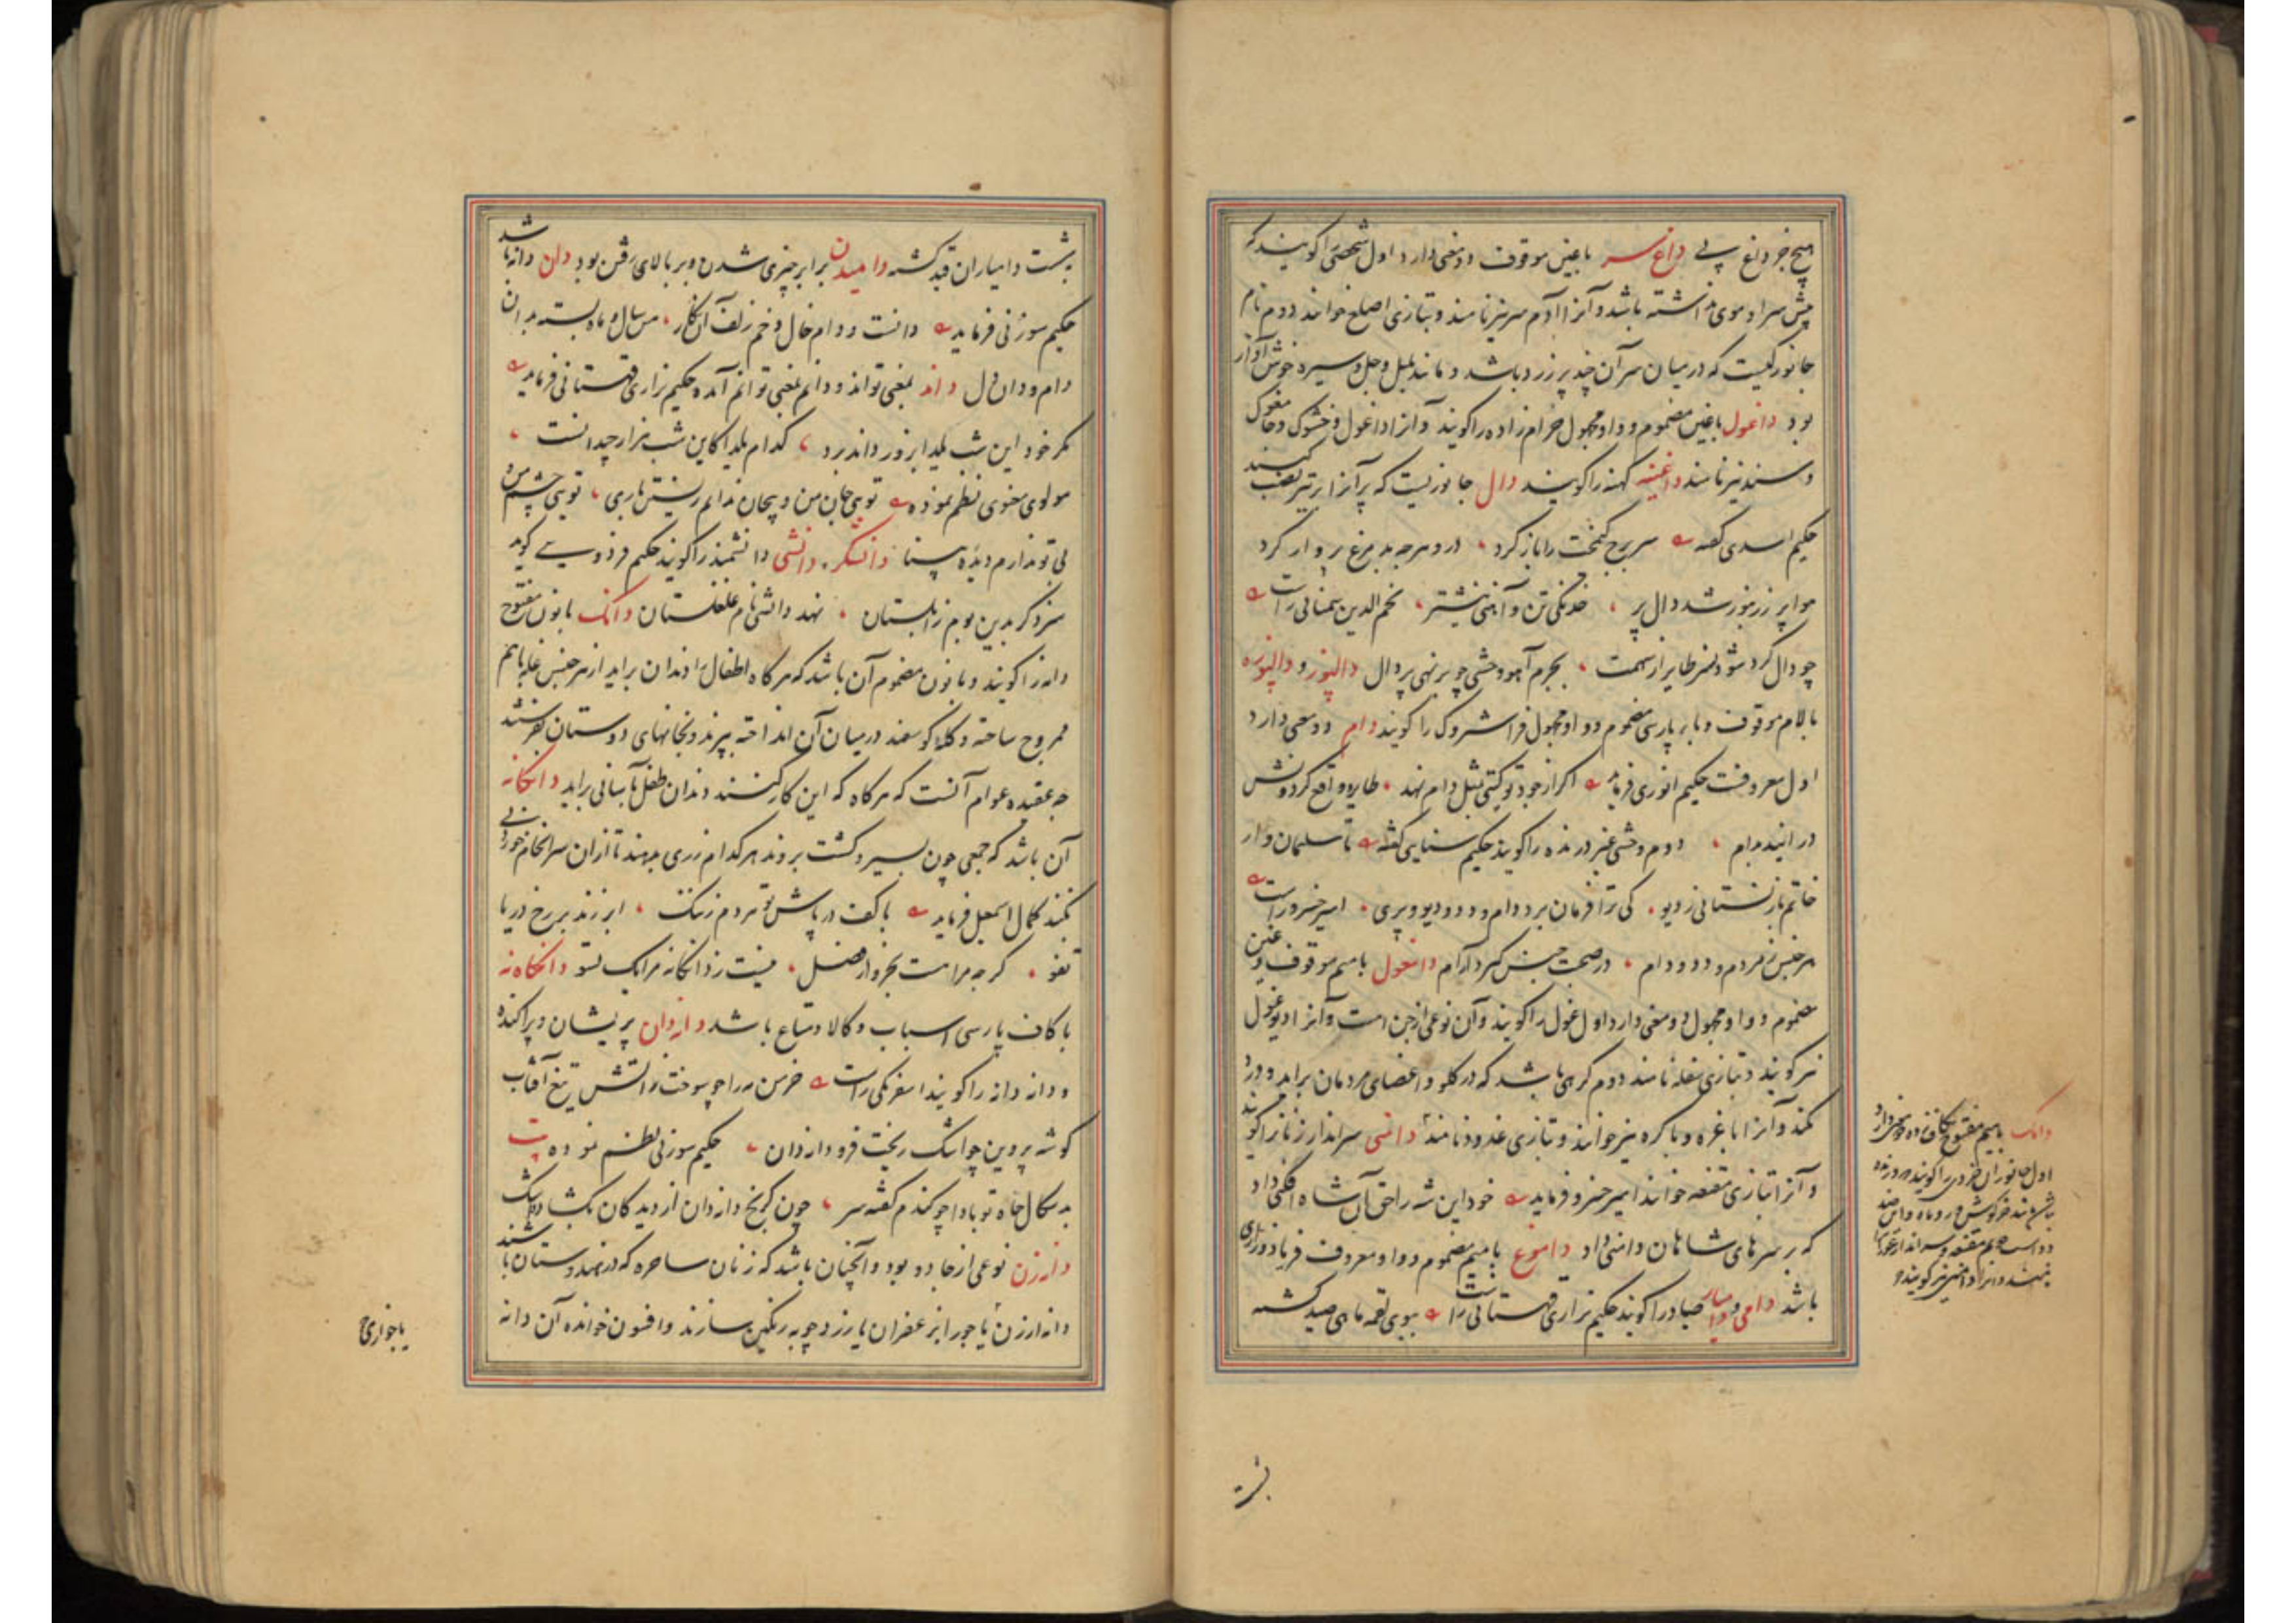 هیچ خر داغ پی داغ سر باغین موقوف دو معنی دارد اول شخصی را گویند که
پیش سر او موی نداشته باشد و آنرا آدم سر نیز نامند و بتازی اصلع خوانند دوم نام
جانورکیست که در میان سر آن چند پر زرد باشد و مانند بلبل و جل و سیره خوش آواز
بود داغول باغین مضموم و واو مجهول حرام زاده را گویند و آنرا داغول و خشوک
و سند نیز نامند داغینه کهنه را گویند دال جانوریست که پر آنرا بر تیر نصب کنند
حکیم اسدی گفته سر برج را باز کرد در و هرچه بد مرغ پرواز کرد
هوا پر ز زنبور شد دال پر خدنگی تن و آهنی نیشتر نجم الدین سمنانی راست
چو دال کرد شود نسر طایر از سهمت بجرم آهو وحشی چو بر نهی پر دال دالپوز و دالپوزه
بالام موقوف و باء پارسی مضموم و واو مجهول فراشتروک را گویند دام دو معنی دارد
اول معروفست حکیم انوری فرماید اگر از جود تو گیتی بمثل دام نهد طایر واقع گردونش
در آید بدام دوم وحشی غیر درنده را گویند حکیم سنایی گفته تا سلیمان وار
خاتم باز نستانی ز دیو کی ترا فرمان برد دام و دد و دیو و پری امیر خسرو راست
هر جنس ز مردم و دد و دام در صحبت جنس گیرد آرام دامغول بامیم موقوف و غین
مضموم و واو مجهول دو معنی دارد اول غول را گویند و آن نوعی از جن است و آنرا دیو غول
نیز گویند و بتازی سعلاة نامند دوم گرهی باشد که در گلو و اعضای مردمان برآید و درد
کند و آنرا باغره و باکره نیز خوانند و بتازی غدود نامند دامنی سر انداز زنانرا گویند
و آنرا بتازی مقنعه خوانند امیر خسرو فرماید خود این شه را حق آن شاه افکنی داد
که بر سرهای شاهان دامنی داد داموغ بامیم مضموم و واو معروف فریاد و زاری
باشد دامی و دامیار صیاد را گویند حکیم نزاری قهستانی راست ببوی لقمه ماهی صید گشته
دامک بامیم مفتوح بکاف زده دو معنی دارد
اول جانوران خرد را گویند
مانند خرگوش و روباه و امثال
دوم مقنعه و سرانداز عورات
باشد و آنرا دامنی نیز گویند
بشست
بشست دامیاران قید گشته دامیدن برابر چیزی شدن و بر بالای رفتن بود دان دانه باشد
حکیم سوزنی فرماید دانست و دام خال و خم زلف آن نگار من سال و ماه بسته بدان
دام و دان دل داند بمعنی تواند و دانم بمعنی توانم آمده حکیم نزاری قهستانی فرماید
مگر خود این شب یلدا بروز داند برد کدام یلدا کاین شب هزار چندانست
مولوی معنوی نظم نموده تویی جان من و بیجان ندانم زیستن باری تویی چشم من و
بی تو ندارم دیده بینا دانشگر دانشی دانشمند را گویند حکیم فردوسی گوید
سزد گر بدین بوم زابلستان نهد دانشی نام غلغلستان دانک بانون مفتوح
دانه را گویند و بانون مضموم آن باشد که هرگاه اطفال را دندان برآید از هر جنس غله باهم
ممزوج ساخته و کله گوسفند در میان آن انداخته بپزند و بخانهای دوستان بفرستند
چه عقیده عوام آنست که هرگاه که این کار کنند دندان طفل بآسانی برآید دانگانه
آن باشد که جمعی چون بسیر و گشت بروند هر کدام زری بدهند تا از آن سرانجام خوردنی
بکنند کمال اسمعیل فرماید با کف درپاش تو مردم زننگ ابر زند بر رخ دریا
تفو گرچه مراست بخروار فضل نیست ز دانگانه مرا یک تسو دانگاه نه
با کاف پارسی اسباب و کالا و متاع باشد دانه دان پریشان و پراکنده
و دانه دانه را گویند اسفرنگی راست خرمن مه را چو سوخت ز آتش تیغ آفتاب
گوشه پروین چو اشک ریخت فرو دانه دان حکیم سوزنی نظم نموده
بد سگال جاه تو بادا چو گندم کفته سر چون کرنج دانه دان از دیدگان بگشاد اشک
دانه زن نوعی از جادو بود و آنچنان باشد که زنان ساحره که در هندوستان باشند
دانه ارزن یا جو را بزعفران یا زردچوبه رنگین سازند و افسون خوانده آن دانه